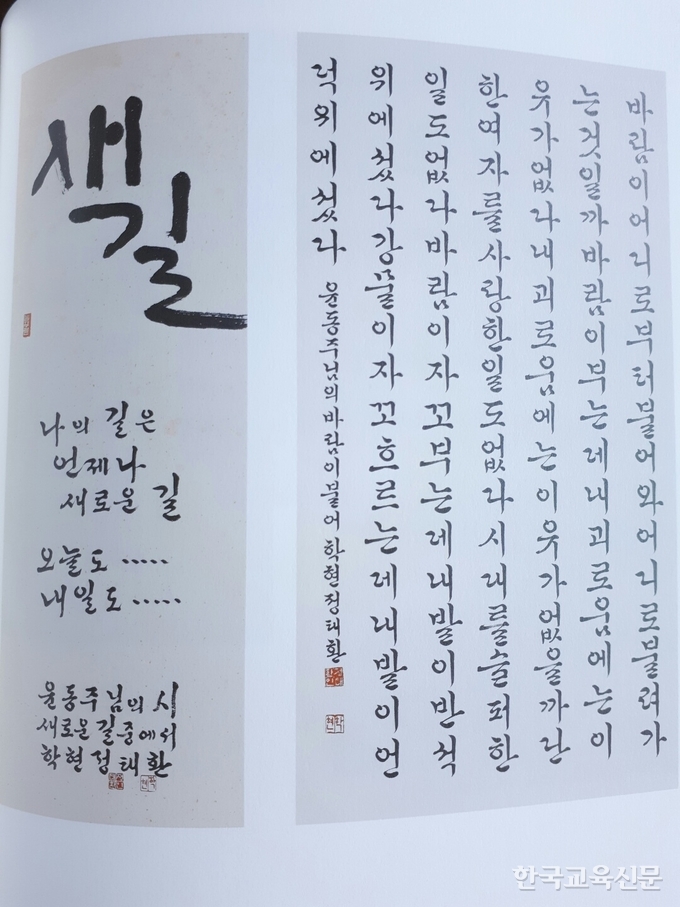 새길
나의 길은
언제나
새로운 길
오늘도 .....
내일도 .....
윤동주님의 시
새로운 길 중에서
학현 정태환
바람이어디로부터불어와어디로불려가
는것일까바람이부는데내괴로움에는이
유가없다내괴로움에는이유가없을까단
한여자를사랑한일도없다시대를슬퍼한
일도없다바람이자꼬부는데내발이반석
위에섰다강물이자꼬흐르는데내발이언
덕위에섰다 윤동주님의바람이불어 학현정태환
한국교육신문